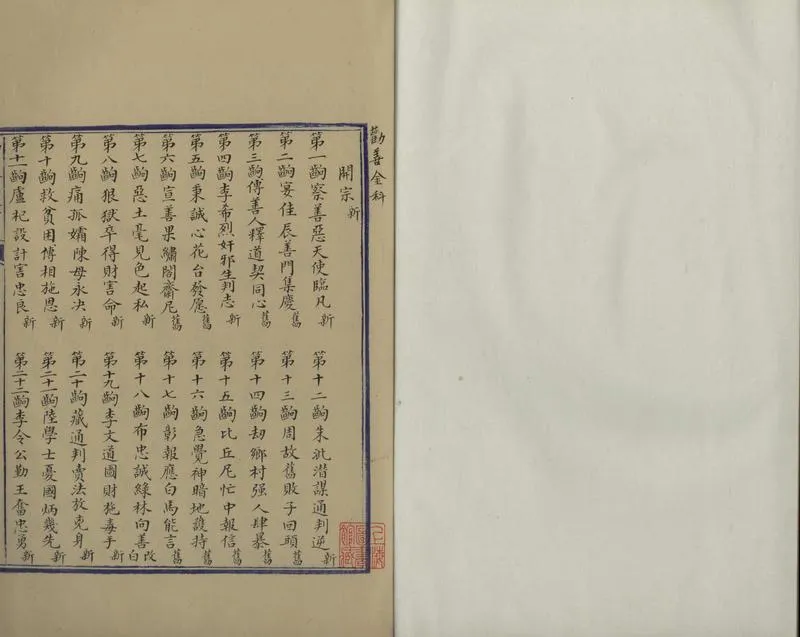 勸善金科
開宗 新
第一齣察善惡天使臨凡 新
第二齣宴佳辰善門集慶 舊
第三齣傅善人釋道契同心 舊
第四齣李希烈奸邪生判志 新
第五齣秉誠心花台發愿 舊
第六齣宣善果繡閣齋尼 舊
第七齣惡土毫見色起私 新
第八齣狠獄卒得財害命 新
第九齣痛孤孀陳母永决 新
第十齣救貧困傅相施恩 新
第十一齣盧杞設計害忠良 新
第十二齣朱泚潛謀通判逆 新
第十三齣周故舊敗子回頭 舊
第十四齣刧鄉村强人肆暴 舊
第十五齣比丘尼忙中報信 舊
第十六齣急覺神暗地護持 舊
第十七齣彰報應白馬能言 舊
第十八齣布忠誠綠林向善 改白
第十九齣李文道圖財施毒手 新
第二十齣藏通判賣法放克身 新
第二十一齣陸學士憂國炳幾先 新
第二十二齣李令公勤王奮忠勇 新